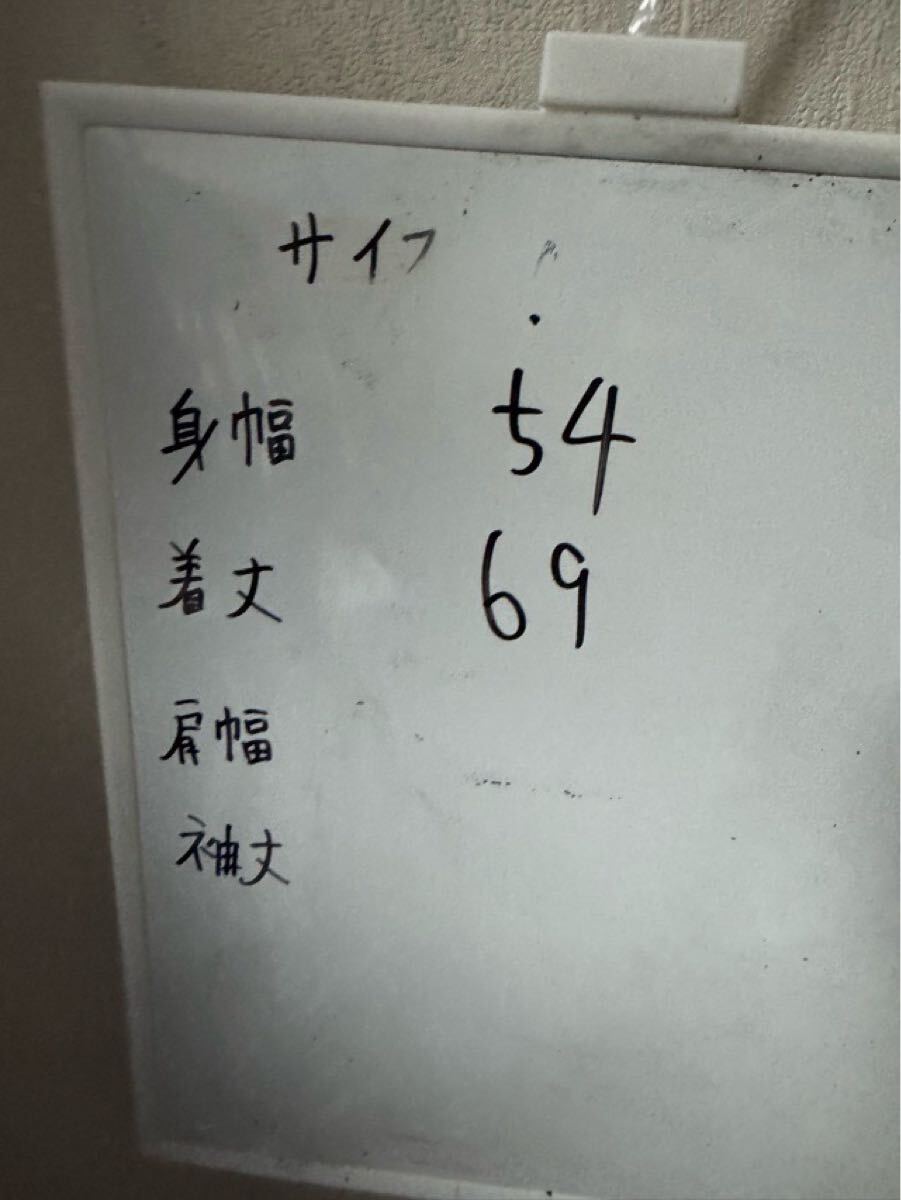 サイフ
身幅 54
着丈 69
肩幅
袖丈